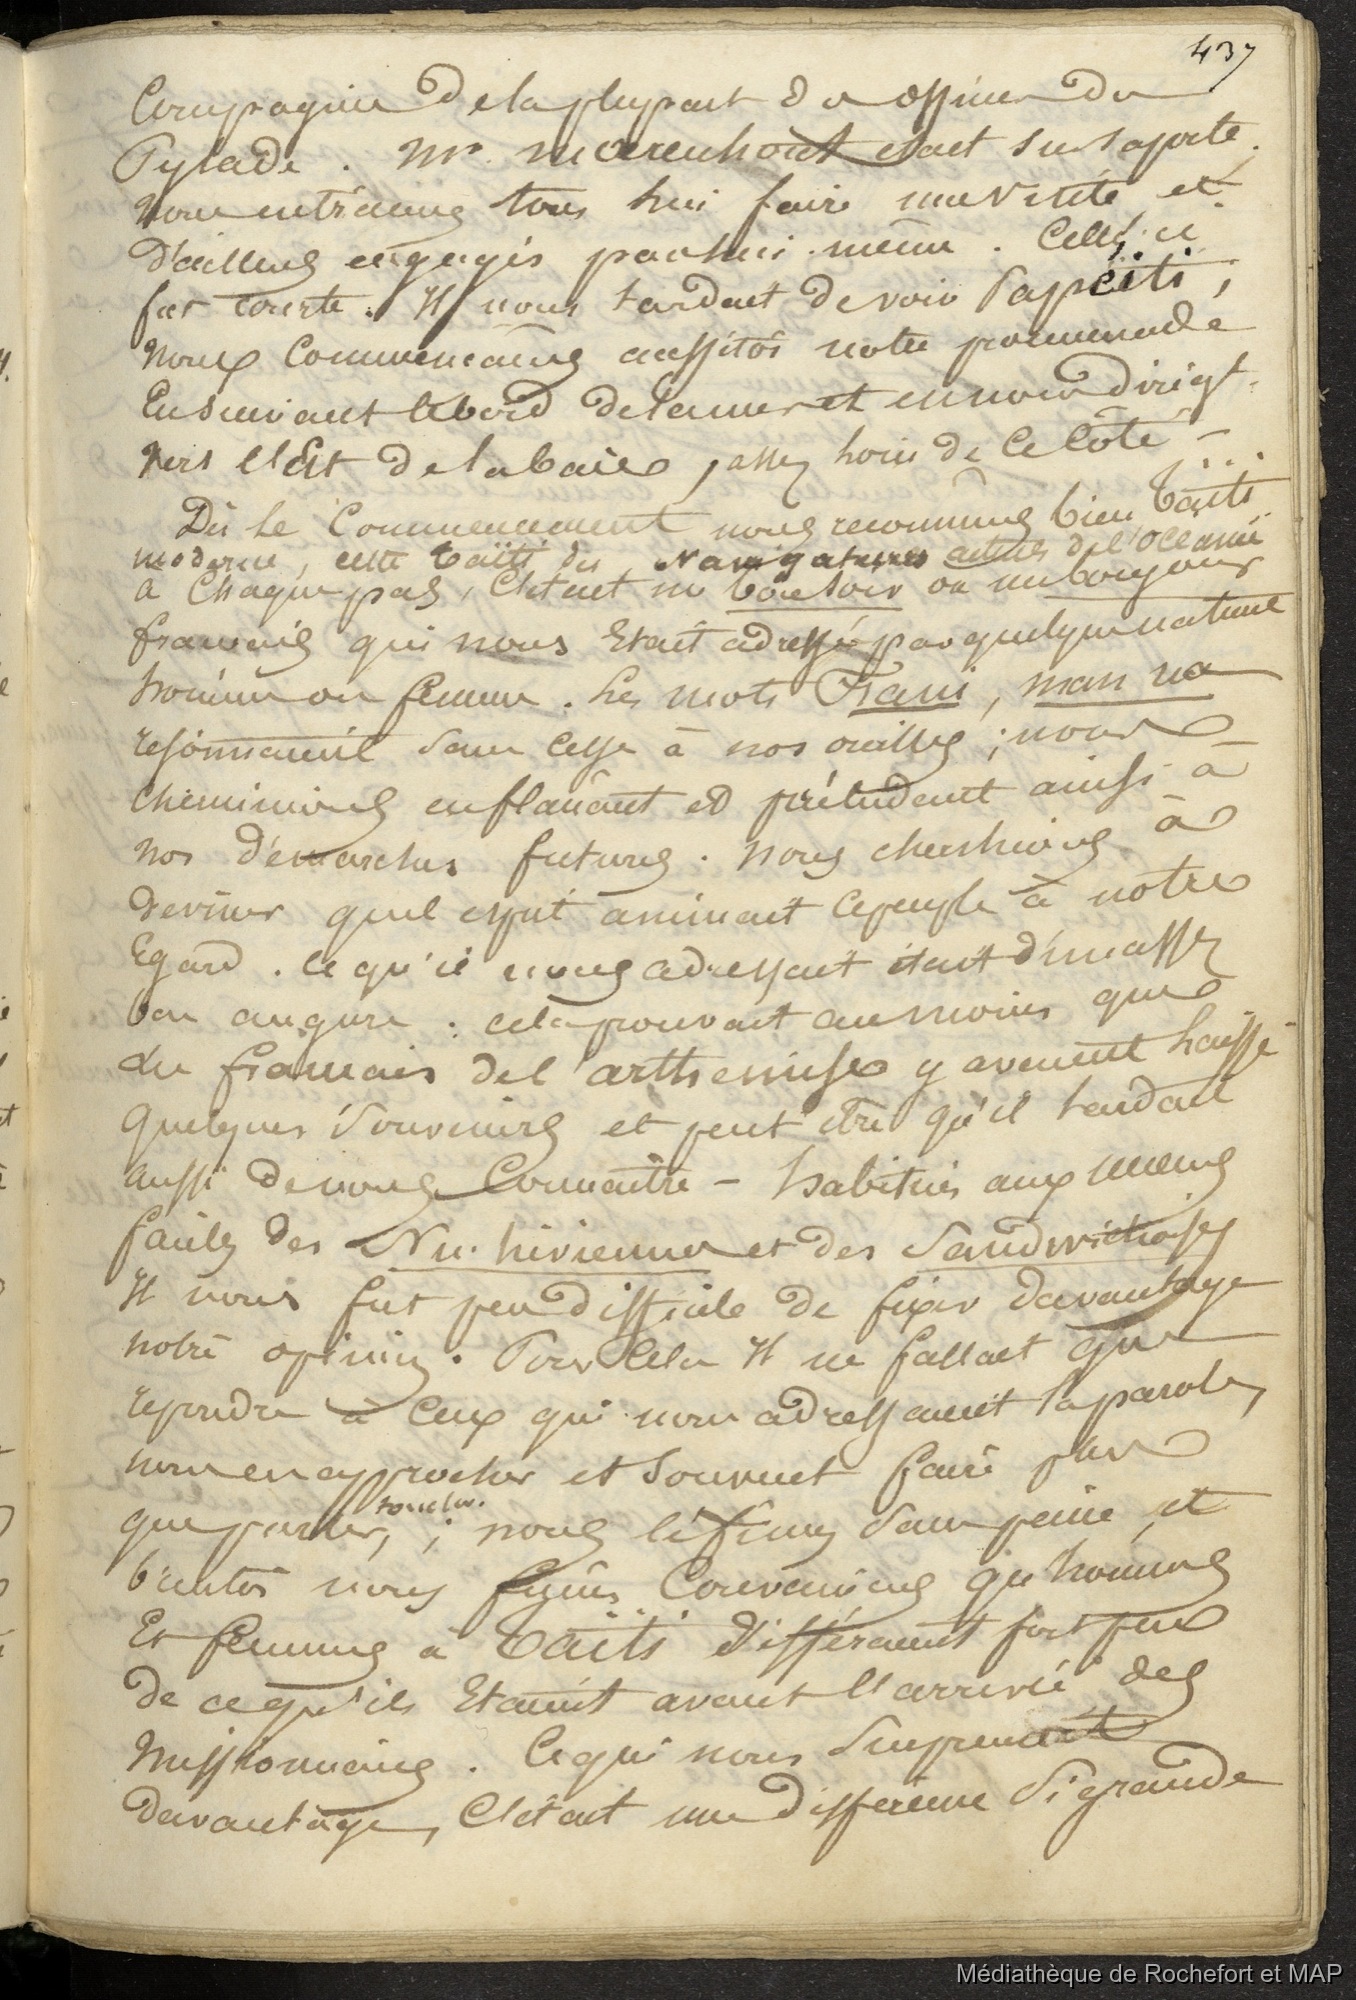 437
Compagnie de la plupart des officiers du
Pylade. Mr. Moerenhout etait sur sa porte,
nous entrâmes tous lui faire une visite et
d'ailleurs engagés par lui même. Celle ci
fut courte. Il nous tardait de voir Papeïti,
nous commençames aussitôt notre promenade
En suivant le bord de la mer et en nous dirigt
vers l'Est de la baie, assez loin de ce côté –
Dès le commencement nous reconnumes bien Taïti
moderne, cette Taïti des Navigateurs actuels de l'océanie
a chaque pas, c'etait un bonsoir ou un bonjour
français qui nous etait adressé par quelque naturel
homme ou femme. Les mots Frani, man na
resonnaient sans cesse à nos oreilles; nous
cheminions en flanant et préludant ainsi à
nos démarches futures. nous cherchions à
deviner quel esprit animait ce peuple à notre
Egard. ce qu'il nous adressait était d'un assez
bon augure: cela prouvait au moins que
les français de l'arthemise y avaient laissé
quelques souvenirs et peut être qu'il tardait
aussi de nous connaitre – habitués aux moeurs
faciles des Nu-hiviennes et des Sandwichoises
Il nous fut peu difficile de fixer davantage
notre opinion. Pour cela Il ne fallait que
repondre à ceux qui nous adressaient la parole,
nous en approcher et souvent faire plus
toucher.
que parler, ; nous le fimes sans peine, et
bientôt nous fumes convaincus qu'hommes
Et femmes à Taïti différaient fort peu
de ce qu'ils Etaient avant l'arrivée des
Missionnaires. Ce qui nous surprenait
davantage, c'était une différence si grande
Médiathèque de Rochefort et MAP